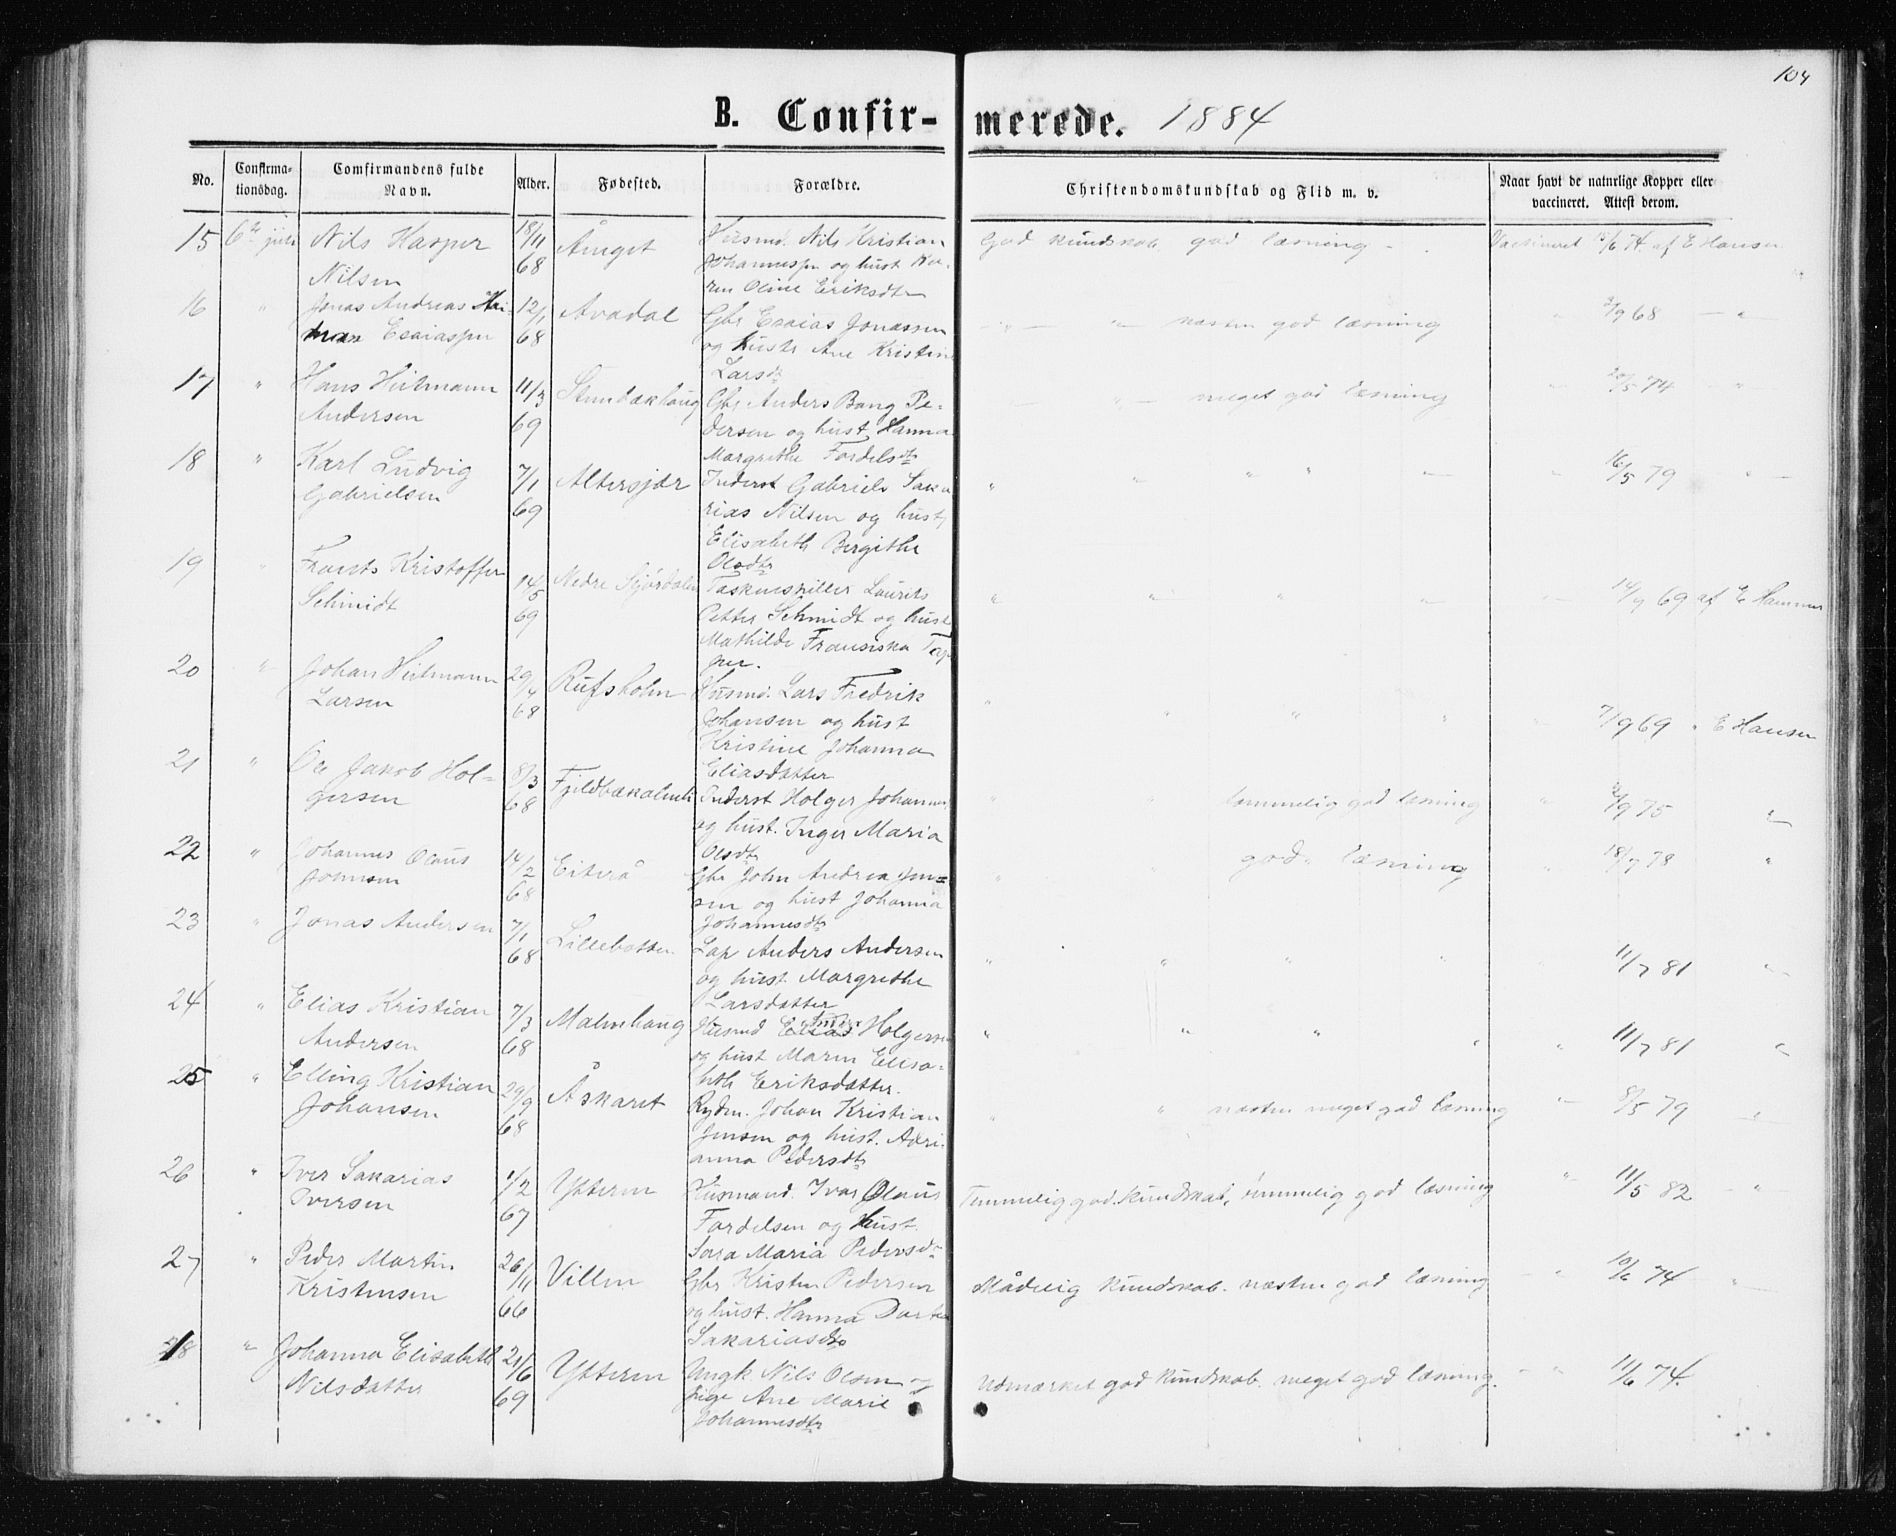 104
B. Confirmerede. 1884
No.
Confirmationsdag.
Comfirmandens fulde Navn.
Alder.
Fødested.
Forældre.
Christendomskundskab og Flid m. v.
Naar havt de naturlige Kopper eller vaccineret. Attest derom.
15 6te juli Nils Kasper 18/11 Husmd. Nils Kristian God kundskab. god læsning - Vaccineret 15/6 74 af E Hansen
Nilsen 68 Johannessen og hust Ka-
ren Oline Eriksdtr
16 " Jonas Andreas 12/1 Avadal Gbr Esaias Jonassen — " — " næsten god læsning " 2/9 68 — "
Esaiassen 68 og hustr Ane Kristine
Larsdtr
17 " Hans Hitmann 11/3 Gbr Anders Bang Pe- — " — meget god læsning " 20/5 74 "
Andersen 69 dersen og hust Hanna
Margrethe Fordelsdtr
18 " Karl Ludvig 7/1 Altersjær Inderst Gabriel Saka " " " " — " 16/5 79 " —
Gabrielsen 69 rias Nilsen og hust
Elisabeth Bergithe
Olsdtr
19 " Kristoffer 14/5 Nedre Stjørdalen Laurits " " " " " 14/9 69 af E Hammer
Schmidt 69 Petter Schmidt og hust
Mathilde Fransiska
20 " Johan Hitmann 29/4 Rufsholm Husmd. Lars Fredrik " " " " " 7/9 69 " E Hansen
Larsen 68 Johansen og hust
Kristine Johanna
Eliasdatter
21 " Ole Jakob Hol- 8/3 Inderst Holger Johannes " " temmelig god læsning " 2/9 75 "
gersen 68 og hust. Inger Maria
Olsdtr
22 " Johannes Olaus 14/2 Eiterå Gbr John Andrea Jon- " god læsning " 18/7 78 "
Johnsen 68 sen og hust Johanna
Johannesdtr
23 " Jonas Andersen 7/1 Lillebotten Lap Anders Andersen " " " " " 11/7 81 "
68 og hust Margrethe
Larsdatter
24 " Elias Kristian 7/3 Malmhaug Husmd Elias Anders Holgersen " " " " " 11/7 81 "
Andersen 68 og hust Maren Elisa-
beth Eriksdatter.
25 " Elling Kristian 29/9 Åskaret Rydn. Johan Kristian " " næsten meget god læsning " 8/5 79 "
Johansen 68 Jensen og hust. Adri-
anna Pedersdtr
26 " Iver Sakarias 1/2 Ytteren Husmand. Ivar Olaus Temmelig god kundskab, temmelig god læsning " 11/5 82 — "
Iversen 67 Fordelsen og hust.
Sara Maria Pedersdtr
27 " Peder Martin 26/11 Villen Gbr Kristen Pedersen Mådelig kundskab. næsten god læsning — " 10/6 74 "
Kristensen 66 og hust. Hanna Dortea
Sakariasdtr
18 " Johanna Elisabeth 21/6 Ytteren Ungk. Nils Olsen og Udmærket god kundskab. meget god læsning. — " 11/6 74.
Nilsdatter 69 pige Ane Marie
Johannesdtr